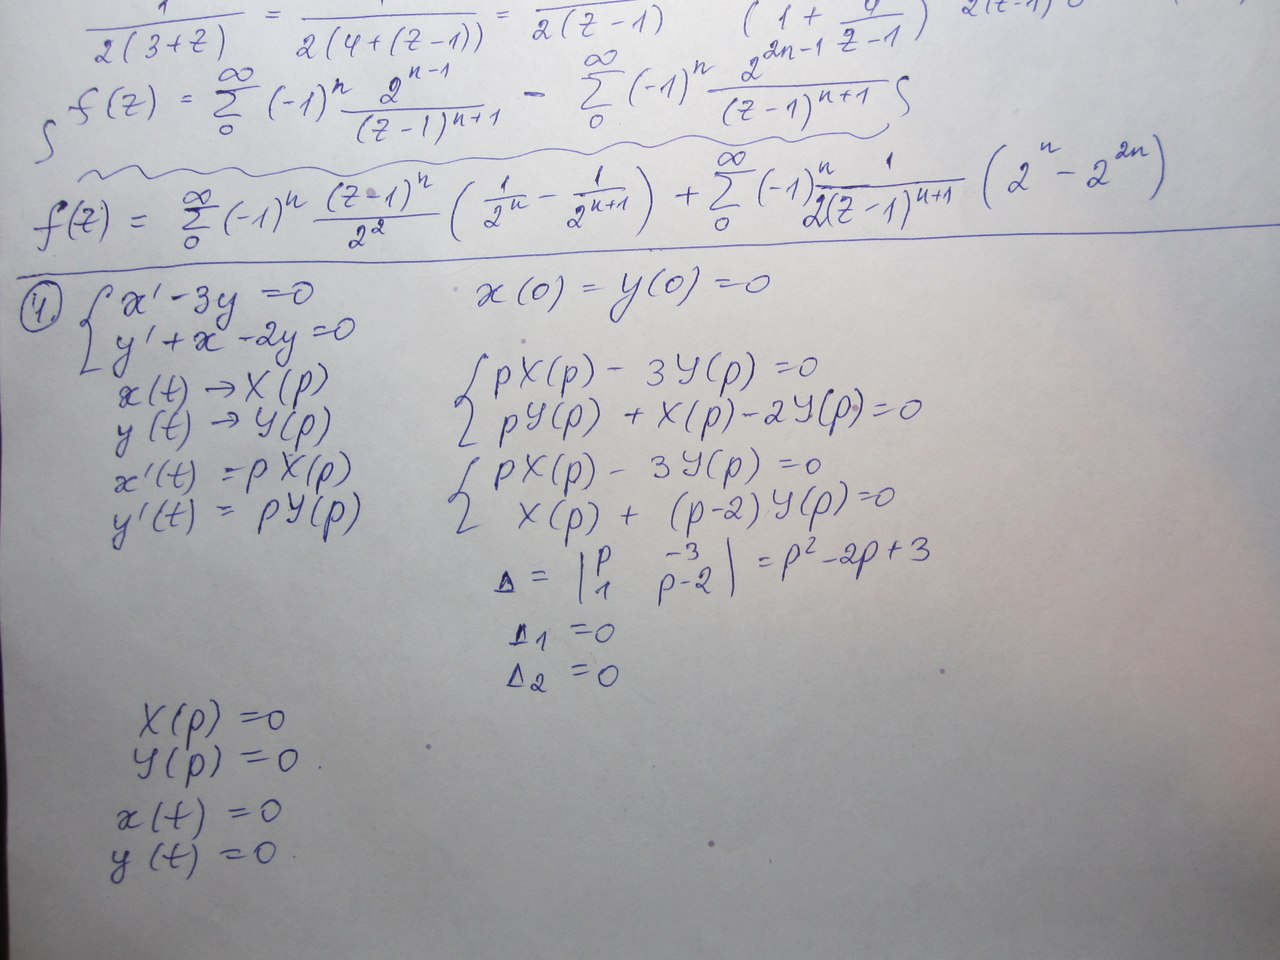 1/(2(3+z)) = 1/(2(4+(z-1))) = /(2(z-1)) (1 + 4/(z-1)) 2(z-1)
f(z) = ∑₀^∞ (-1)^n 2^(n-1)/(z-1)^(n+1) - ∑₀^∞ (-1)^n 2^(2n-1)/(z-1)^(n+1)
f(z) = ∑₀^∞ (-1)^n (z-1)^n/2^2 (1/2^n - 1/2^(n+1)) + ∑₀^∞ (-1)^n 1/(2(z-1)^(n+1)) (2^n - 2^(2n))
4. { x' - 3y = 0 x(0) = y(0) = 0
y' + x - 2y = 0
x(t) → X(p) { pX(p) - 3Y(p) = 0
y(t) → Y(p) pY(p) + X(p) - 2Y(p) = 0
x'(t) = pX(p) { pX(p) - 3Y(p) = 0
y'(t) = pY(p) X(p) + (p-2)Y(p) = 0
Δ = | p -3 ; 1 p-2 | = p² - 2p + 3
Δ₁ = 0
Δ₂ = 0
X(p) = 0
Y(p) = 0.
x(t) = 0
y(t) = 0.